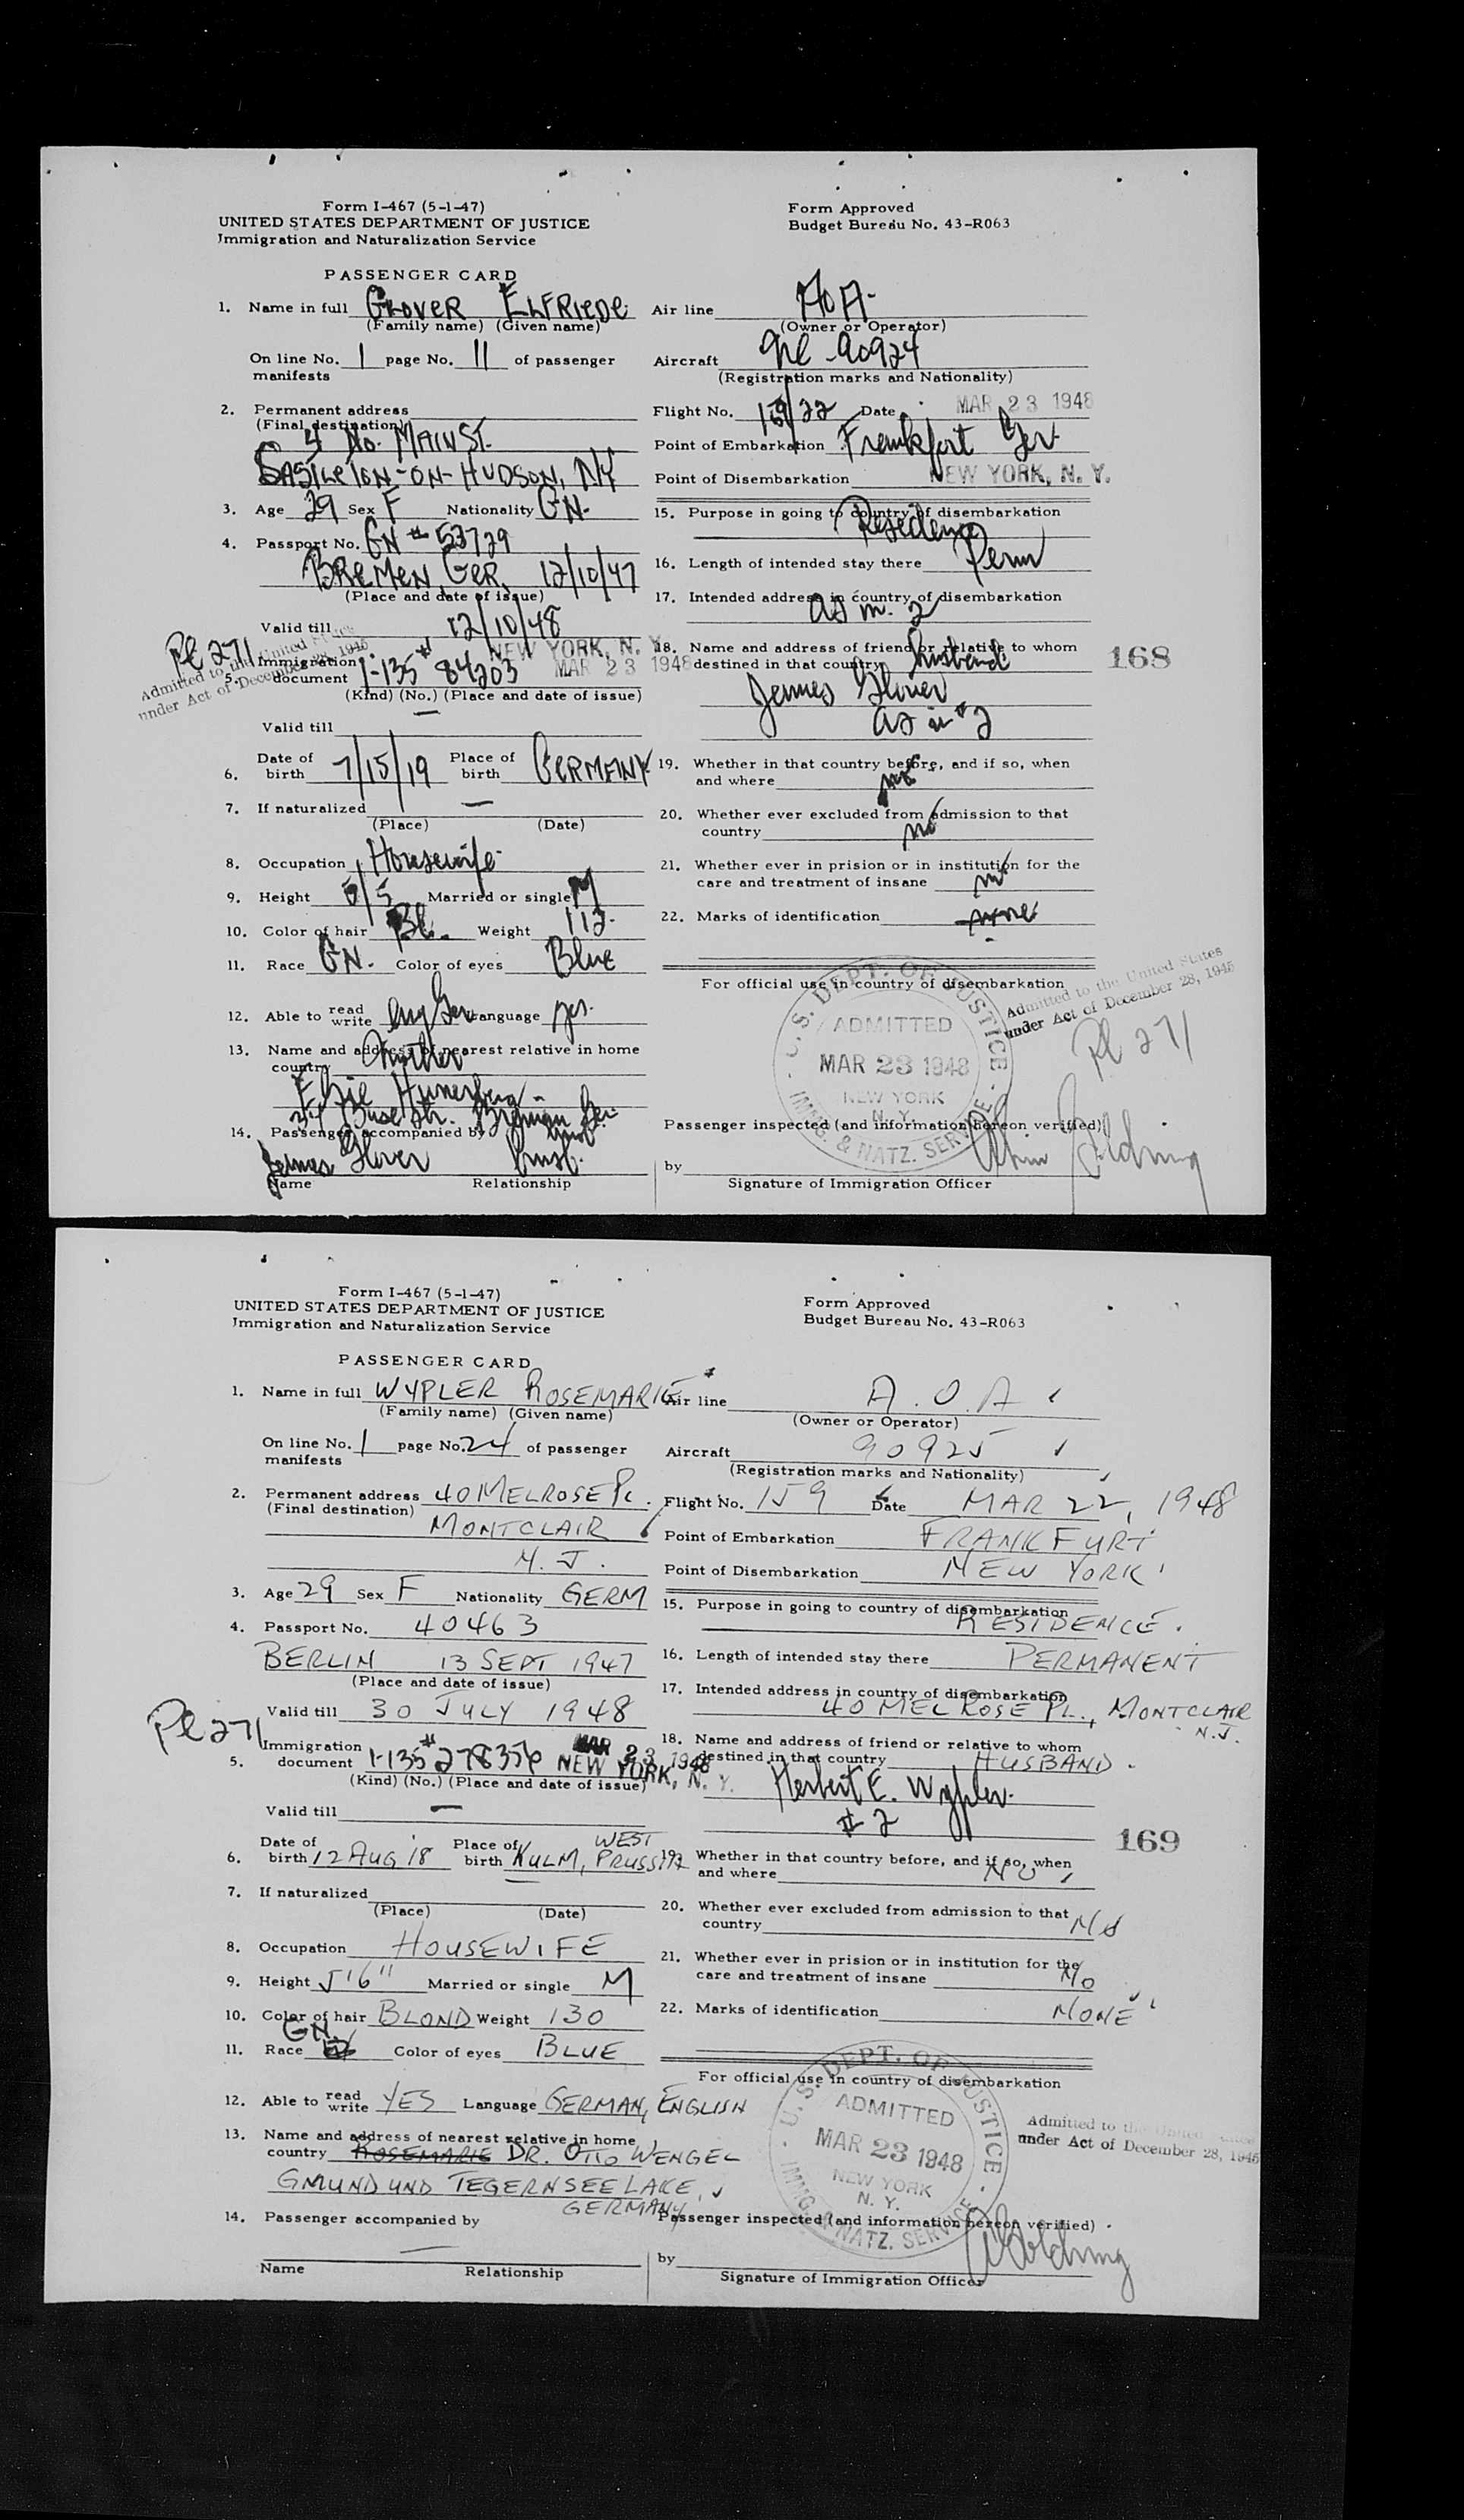 Form I-467 (5-1-47)
UNITED STATES DEPARTMENT OF JUSTICE
Immigration and Naturalization Service
Form Approved
Budget Bureau No. 43-R063
PASSENGER CARD
1. Name in full GLOVER ELFRIEDE
(Family name) (Given name)
On line No. 1 page No. 11 of passenger
manifests
2. Permanent address
(Final destination)
4 No. MAIN ST.
CASTLETON-ON-HUDSON, NY
3. Age 29 Sex F Nationality GN.
4. Passport No. GN # 53729
BREMEN, GER. 12/10/47
(Place and date of issue)
Valid till 12/10/48
Pl 271
Admitted to the United States
under Act of December 28, 1945
5. Immigration document I-135 # 84203
NEW YORK, N. Y.
MAR 23 1948
(Kind) (No.) (Place and date of issue)
Valid till —
6. Date of birth 7/15/19 Place of birth GERMANY
7. If naturalized —
(Place) (Date)
8. Occupation Housewife
9. Height 5/5 Married or single M
10. Color of hair Bl. Weight 112
11. Race GN. Color of eyes Blue
12. Able to read write Eng Ger Language yes.
13. Name and address of nearest relative in home
country Mother
34 Buse Str. Bremen Ger
14. Passenger accompanied by
James Glover husb.
Name Relationship
Air line AOA
(Owner or Operator)
Aircraft NC-90924
(Registration marks and Nationality)
Flight No. 159/22 Date MAR 23 1948
Point of Embarkation Frankfort Ger.
Point of Disembarkation NEW YORK, N. Y.
15. Purpose in going to country of disembarkation
Residence
16. Length of intended stay there Perm
17. Intended address in country of disembarkation
as in 2
18. Name and address of friend or relative to whom
destined in that country husband
James Glover
as in #2
168
19. Whether in that country before, and if so, when
and where no
20. Whether ever excluded from admission to that
country no
21. Whether ever in prision or in institution for the
care and treatment of insane no
22. Marks of identification none
For official use in country of disembarkation
U. S. DEPT. OF JUSTICE
ADMITTED
MAR 23 1948
NEW YORK
N. Y.
IMMG. & NATZ. SERVICE
Admitted to the United States
under Act of December 28, 1945
Pl 271
Passenger inspected (and information hereon verified)
by
Signature of Immigration Officer
Form I-467 (5-1-47)
UNITED STATES DEPARTMENT OF JUSTICE
Immigration and Naturalization Service
Form Approved
Budget Bureau No. 43-R063
PASSENGER CARD
1. Name in full WYPLER ROSEMARIE
(Family name) (Given name)
On line No. 1 page No. 24 of passenger
manifests
2. Permanent address 40 MELROSE PL.
(Final destination)
MONTCLAIR
N. J.
3. Age 29 Sex F Nationality GERM
4. Passport No. 40463
BERLIN 13 SEPT 1947
(Place and date of issue)
Valid till 30 JULY 1948
Pl 271
5. Immigration document I-135 # 278356
MAR 23 1948
NEW YORK, N. Y.
(Kind) (No.) (Place and date of issue)
Valid till —
6. Date of birth 12 AUG 18 Place of birth KULM, WEST PRUSSIA
7. If naturalized
(Place) (Date)
8. Occupation HOUSEWIFE
9. Height 5'6" Married or single M
10. Color of hair BLOND Weight 130
11. Race GN Color of eyes BLUE
12. Able to read write YES Language GERMAN, ENGLISH
13. Name and address of nearest relative in home
country ROSEMARIE DR. OTTO WENGEL
GMUND UND TEGERNSEE LAKE,
GERMANY
14. Passenger accompanied by
—
Name Relationship
Air line A.O.A
(Owner or Operator)
Aircraft 90925
(Registration marks and Nationality)
Flight No. 159 Date MAR 22, 1948
Point of Embarkation FRANKFURT
Point of Disembarkation NEW YORK
15. Purpose in going to country of disembarkation
RESIDENCE.
16. Length of intended stay there PERMANENT
17. Intended address in country of disembarkation
40 MELROSE PL., MONTCLAIR
N.J.
18. Name and address of friend or relative to whom
destined in that country HUSBAND.
Herbert E. Wypler.
# 2
169
19. Whether in that country before, and if so, when
and where NO
20. Whether ever excluded from admission to that
country NO
21. Whether ever in prision or in institution for the
care and treatment of insane NO
22. Marks of identification NONE
For official use in country of disembarkation
U. S. DEPT. OF JUSTICE
ADMITTED
MAR 23 1948
NEW YORK
N. Y.
IMMG. & NATZ. SERVICE
Admitted to the United States
under Act of December 28, 1945
Passenger inspected (and information hereon verified)
by
Signature of Immigration Officer